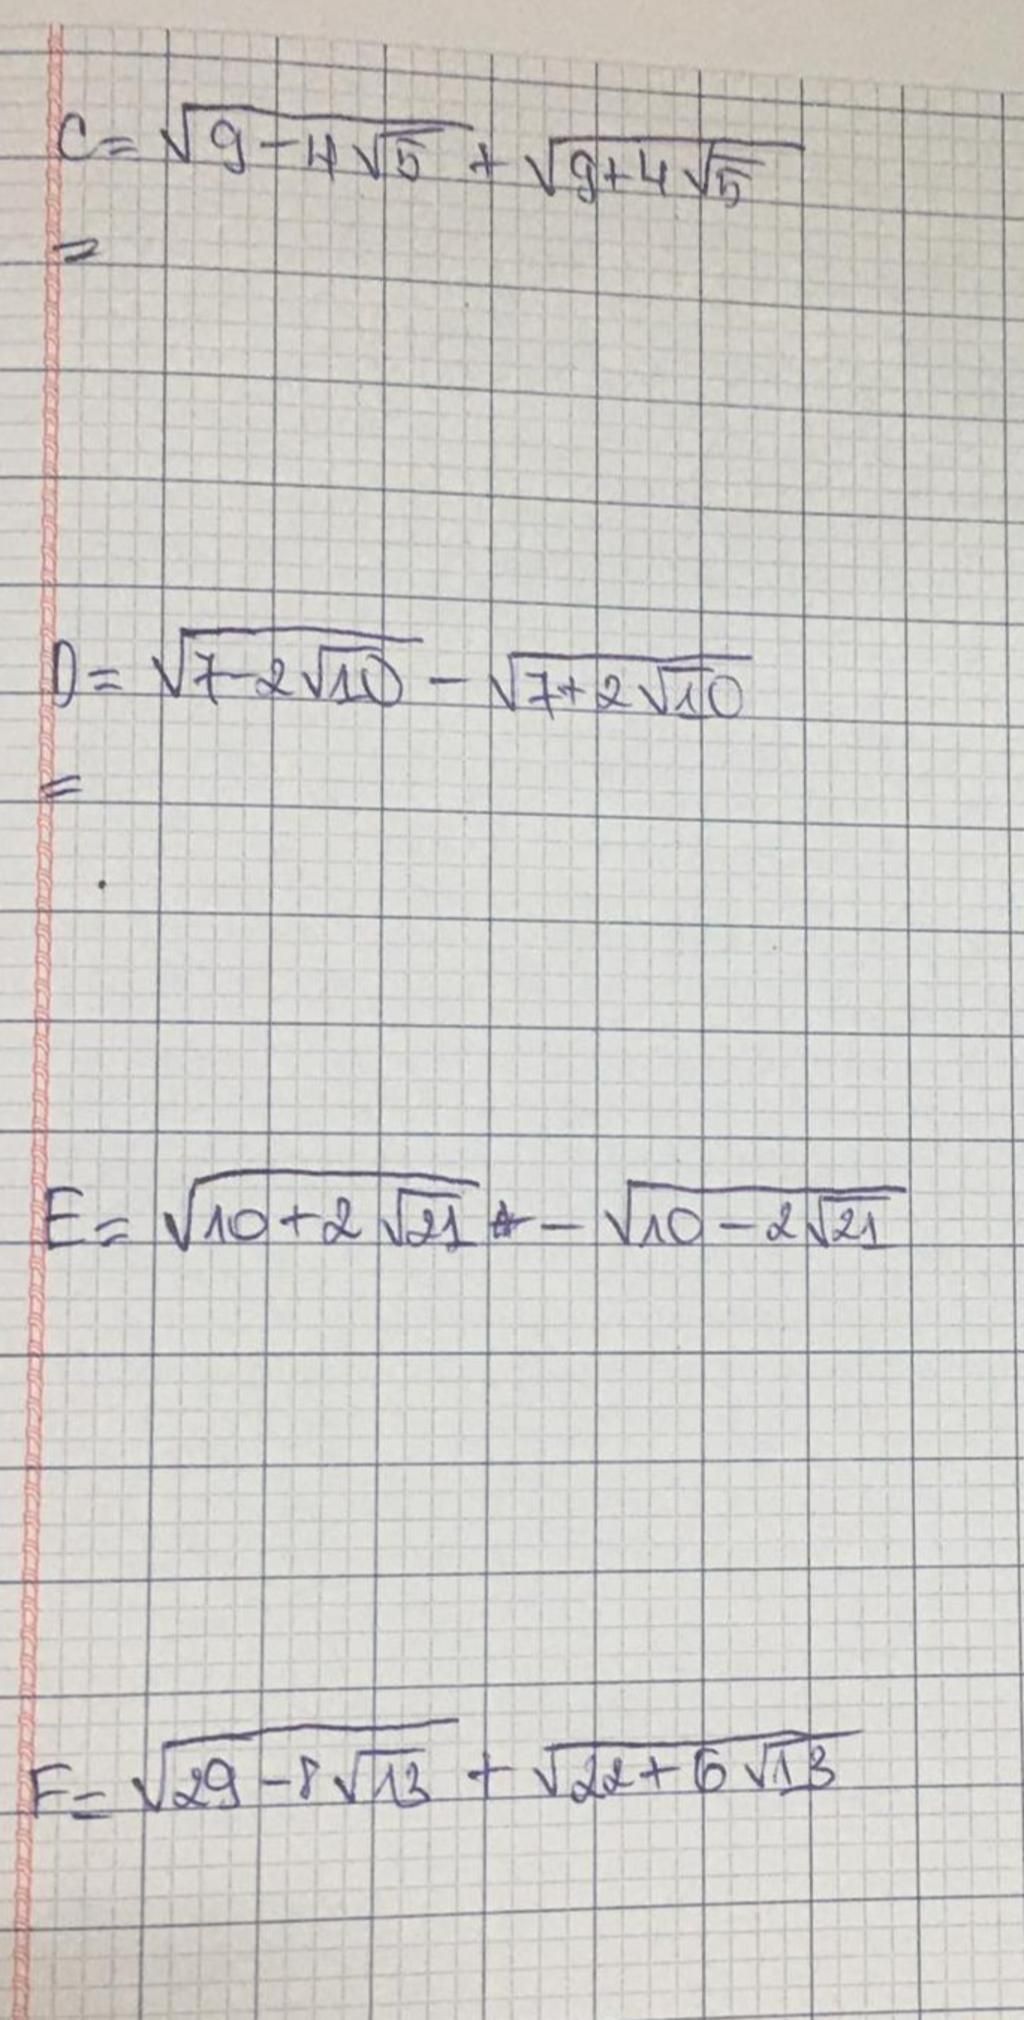 C = √(9 - 4√5) + √(9 + 4√5)
=
D = √(7 - 2√10) - √(7 + 2√10)
=
E = √(10 + 2√21) - √(10 - 2√21)
F = √(29 - 8√13) + √(22 + 6√13)